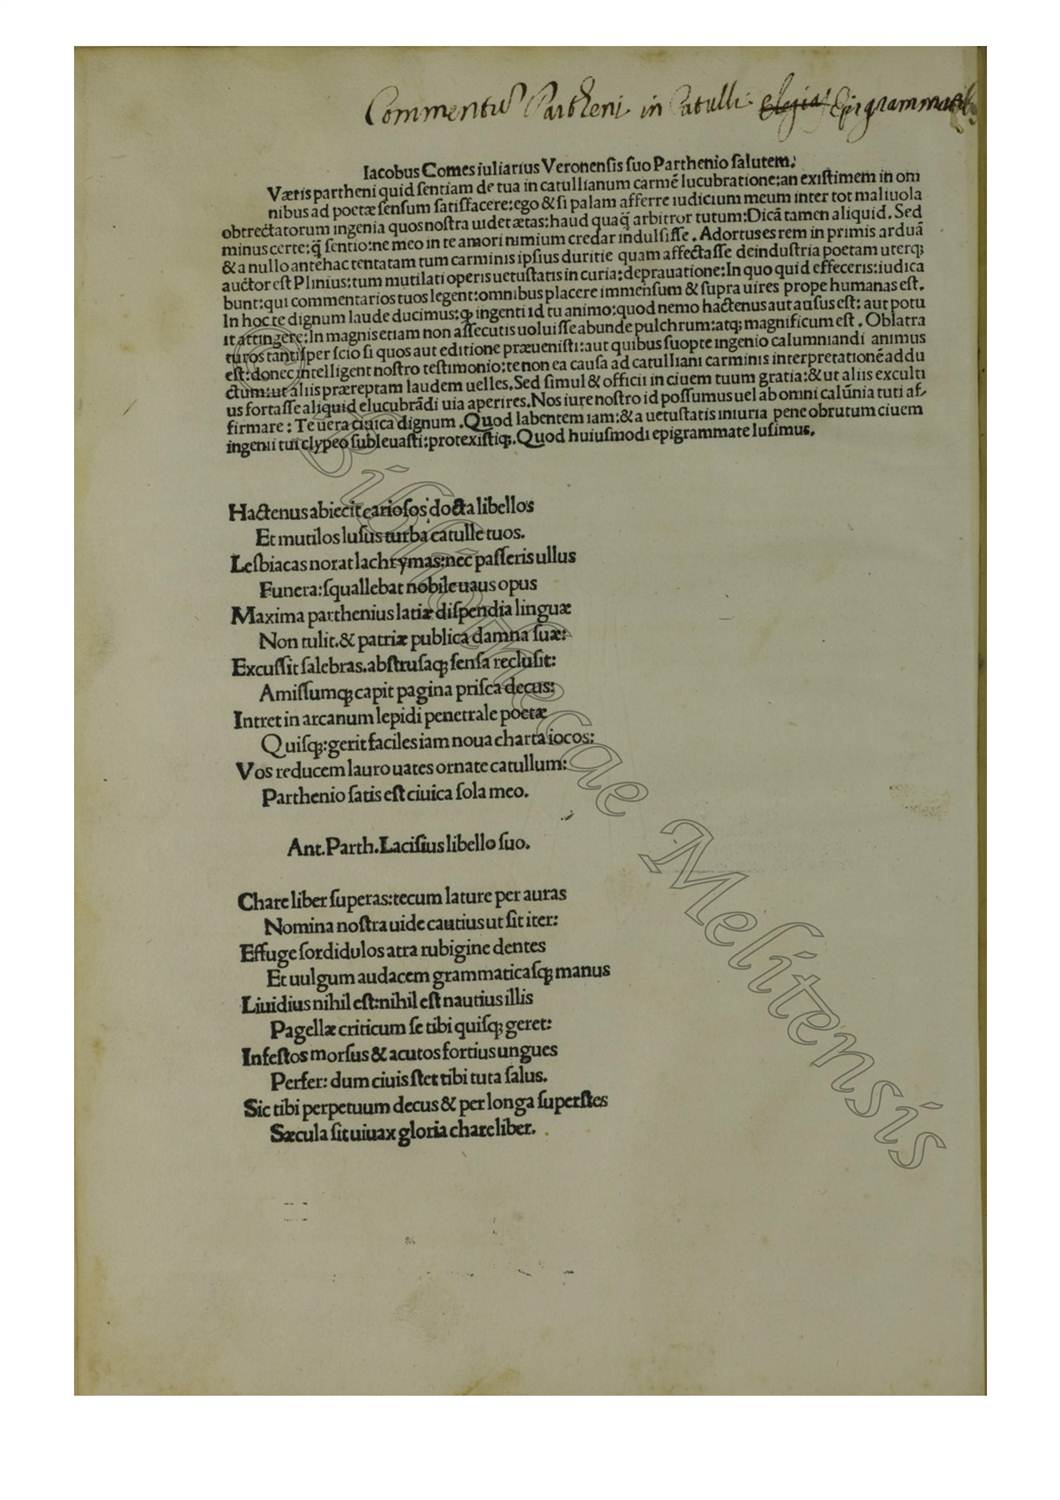 Commentũ Partheni in Catulli elegias Epigrammata
Iacobus Comes iuliarius Veronensis suo Parthenio salutem.
Væris partheni quid sentiam de tua in catullianum carmẽ lucubratione: an existimem in om
nibus ad poetæ sensum satisfacere: ego & si palam afferre iudicium meum inter tot maliuola
obtrectatorum ingenia quos nostra uidet ætas: haud quaq̃ arbitror tutum: Dicã tamen aliquid. Sed
minus certe: q̃ sentio: ne meo in te amori nimium credar indulsisse. Adortus es rem in primis arduã
& a nullo antehac tentatam tum carminis ipsius duritie quam affectasse de industria poetam uterq;
auctor est Plinius: tum mutilati operis uetustatis in curia: deprauatione: In quo quid effeceris: iudica
bunt: qui commentarios tuos legent: omnibus placere immensum & supra uires prope humanas est.
In hoc te dignum laude ducimus: ꝙ ingenti id tu animo: quod nemo hactenus aut ausus est: aut potu
it attingere: In magnis etiam non assecutis uoluisse abunde pulchrum: atq; magnificum est. Oblatra
turos tantisper scio si quos aut editione præuenisti: aut quibus suopte ingenio calumniandi animus
est: donec intelligent nostro testimonio: te non ea causa ad catulliani carminis interpretationẽ addu
ctum: ut aliis præreptam laudem uelles. Sed simul & officii in ciuem tuum gratia: & ut aliis exculti
us fortasse aliquid elucubrãdi uia aperires. Nos iure nostro id possumus uel ab omni calũnia tuti af
firmare: Te uera ciuica dignum. Quod labentem iam: & a uetustatis iniuria pene obrutum ciuem
ingenii tui clypeo subleuasti: protexistiq;. Quod huiusmodi epigrammate lusimus.
Hactenus abiecit cariosos docta libellos
Et mutilos lusus turba catulle tuos.
Lesbiacas norat lachrymas: nec passeris ullus
Funera: squallebat nobile uaus opus
Maxima parthenius latiæ dispendia linguæ
Non tulit. & patriæ publica damna suæ:
Excussit salebras. abstrusaq; sensa reclusit:
Amissumq; capit pagina prisca decus:
Intret in arcanum lepidi penetrale poetæ
Quisq;: gerit faciles iam noua charta iocos:
Vos reducem lauro uates ornate catullum:
Parthenio satis est ciuica sola meo.
Ant. Parth. Lacisius libello suo.
Chare liber superas: tecum lature per auras
Nomina nostra uide cautius ut sit iter:
Effuge sordidulos atra rubigine dentes
Et uulgum audacem grammaticasq; manus
Liuidius nihil est: nihil est nautius illis
Pagellæ criticum se tibi quisq; geret:
Infestos morsus & acutos fortius ungues
Perfer: dum ciuis stet tibi tuta salus.
Sic tibi perpetuum decus & per longa superstes
Sæcula sit uiuax gloria chare liber.
Bibliothecae Melitensis